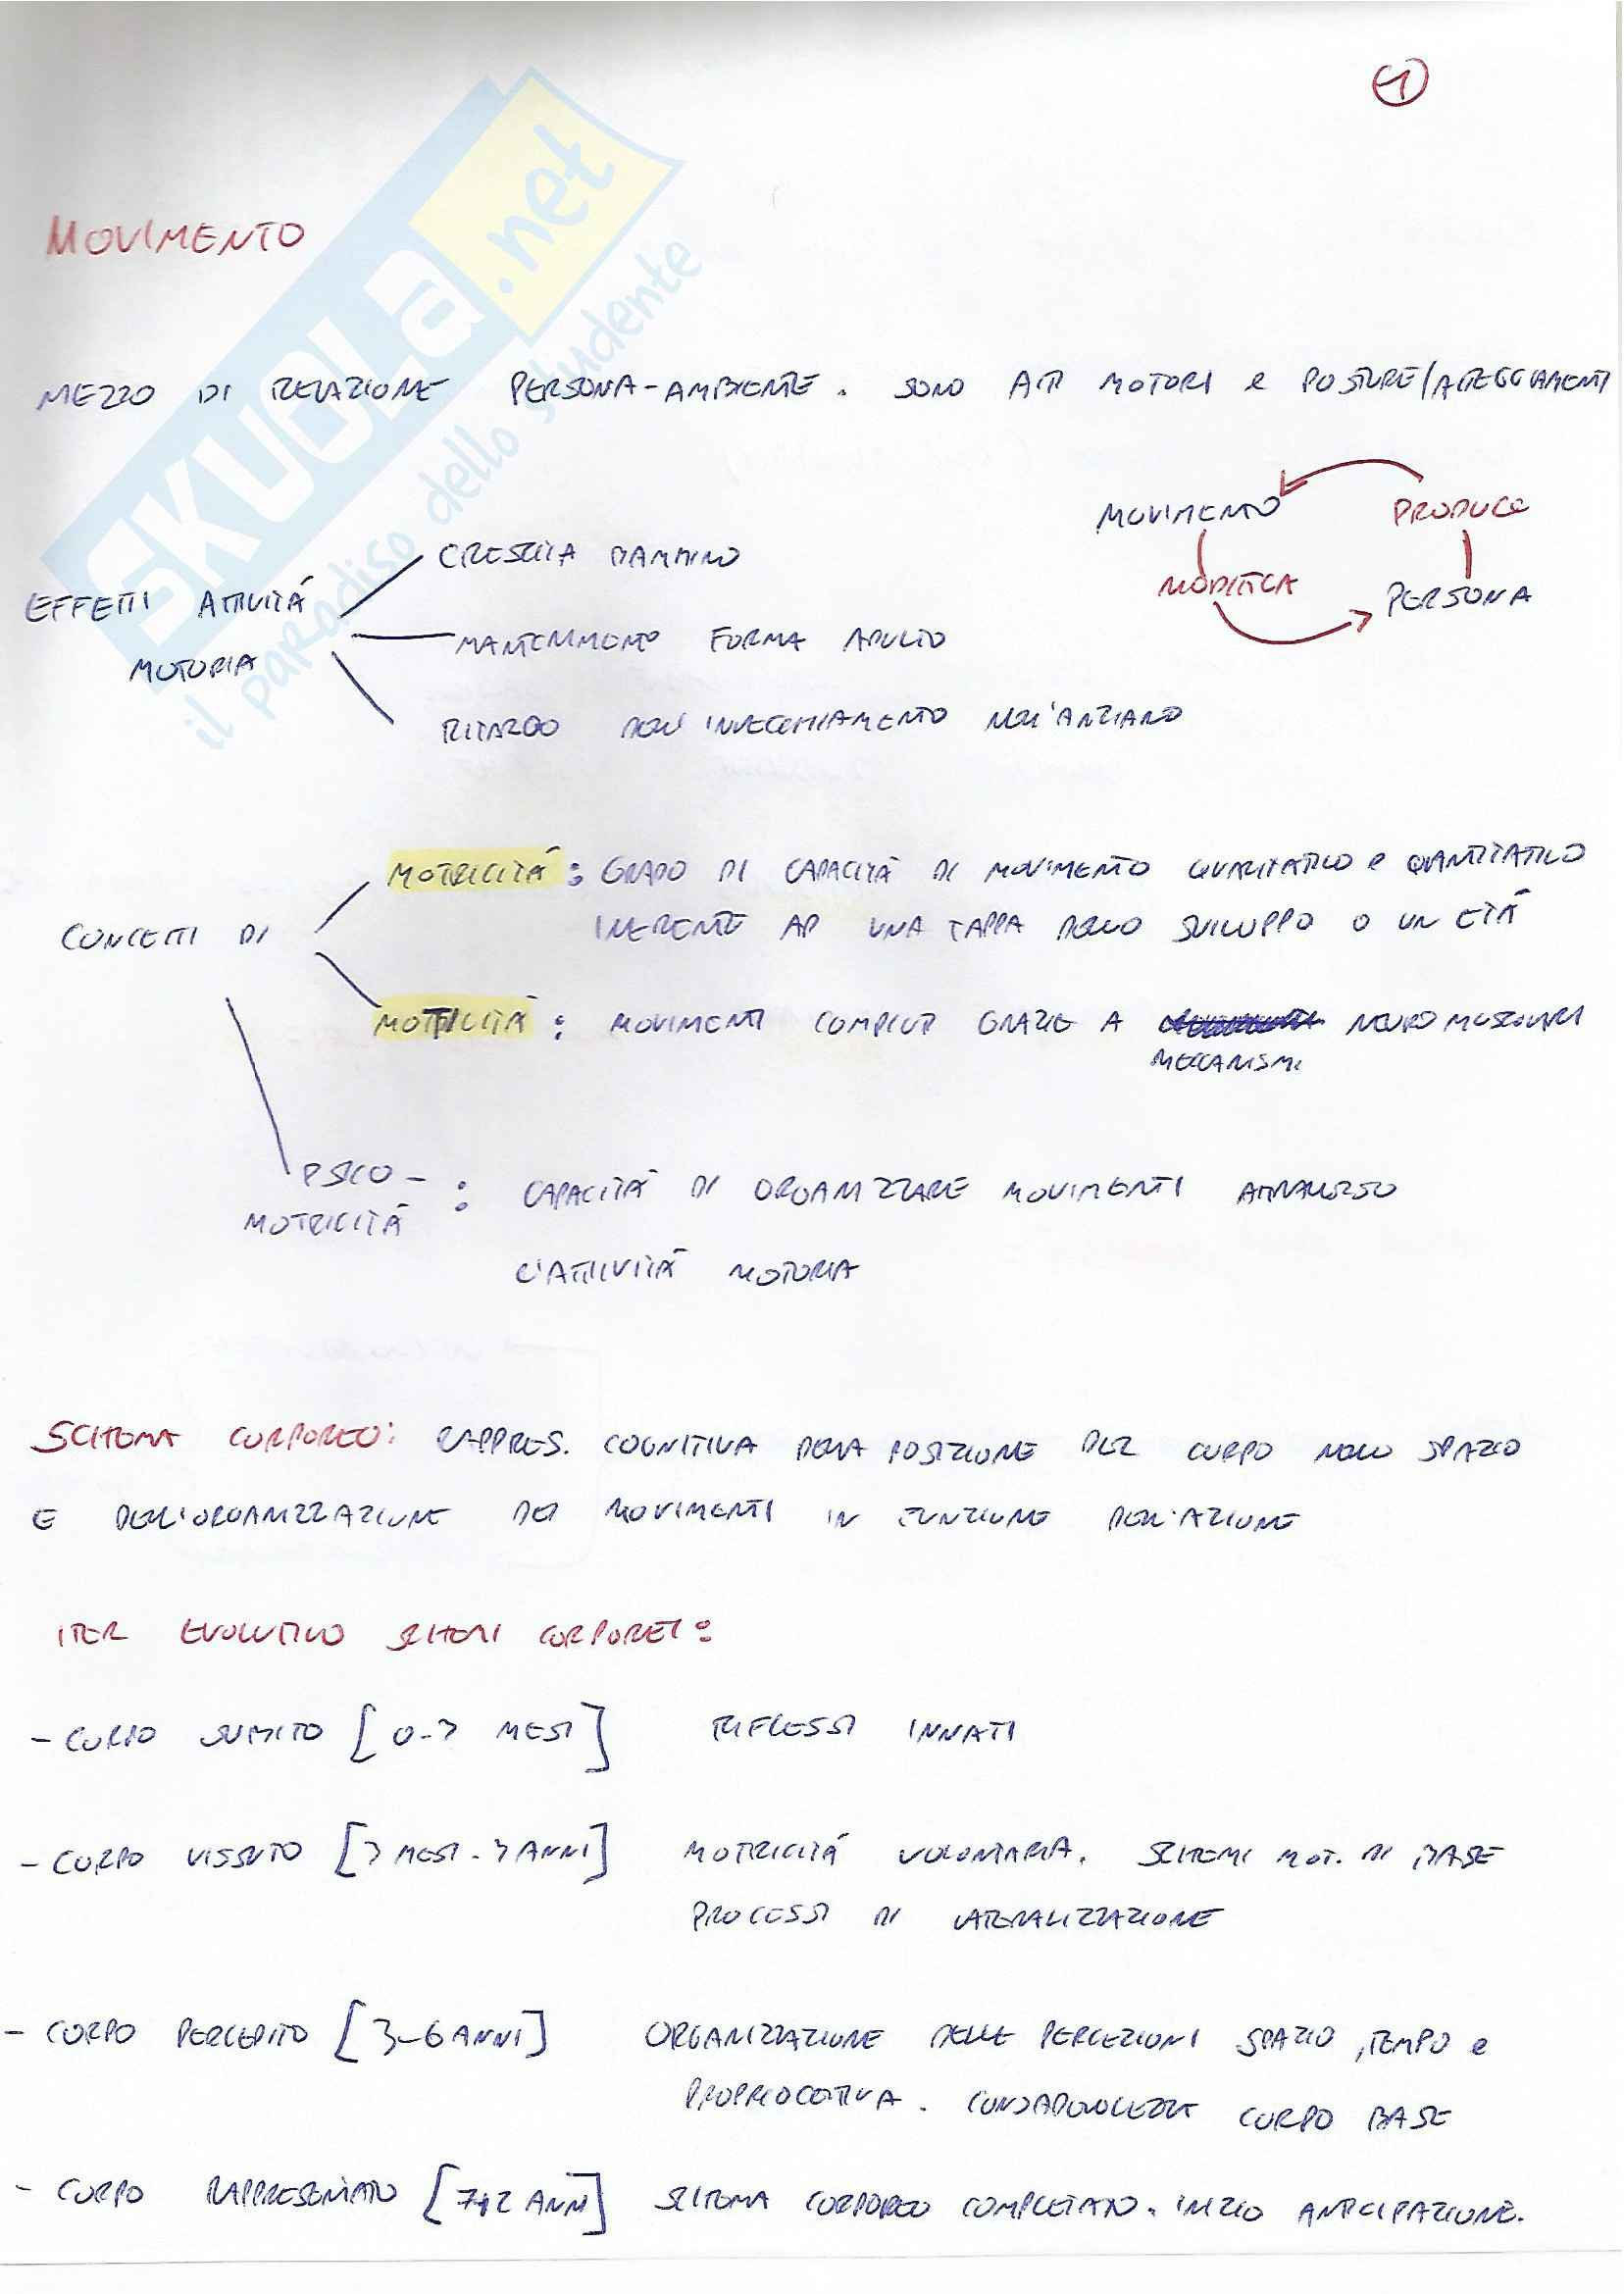 1
SKUOLA.net
il paradiso dello studente
MOVIMENTO
MEZZO DI RELAZIONE PERSONA-AMBIENTE. SONO ATTI MOTORI e POSTURE/ATTEGGIAMENTI
MOVIMENTO PRODUCE
MODIFICA PERSONA
EFFETTI ATTIVITÁ
MOTORIA
CRESCITA BAMBINO
MANTENIMENTO FORMA ADULTO
RITARDO DELL'INVECCHIAMENTO NELL'ANZIANO
CONCETTI DI
MOTRICITÁ: GRADO DI CAPACITÁ DI MOVIMENTO QUALITATIVO e QUANTITATIVO
INERENTE AD UNA TAPPA DELLO SVILUPPO O UN ETÁ
MOTILITÁ: MOVIMENTI COMPIUTI GRAZIE A NEURO MUSCOLARI
MECCANISMI
PSICO-
MOTRICITÁ : CAPACITÁ DI ORGANIZZARE MOVIMENTI ATTRAVERSO
L'ATTIVITÁ MOTORIA
SCHEMA CORPOREO: RAPPRES. COGNITIVA DELLA POSIZIONE DEL CORPO NELLO SPAZIO
E DELL'ORGANIZZAZIONE DEI MOVIMENTI IN FUNZIONE DELL'AZIONE
ITER EVOLUTIVO SCHEMI CORPOREI:
- CORPO SUBITO [0-3 MESI] RIFLESSI INNATI
- CORPO VISSUTO [3 MESI-3 ANNI] MOTRICITÁ VOLONTARIA. SCHEMI MOT. DI BASE
PROCESSI DI LATERALIZZAZIONE
- CORPO PERCEPITO [3-6 ANNI] ORGANIZZAZIONE DELLE PERCEZIONI SPAZIO, TEMPO e
PROPRIOCETTIVA. CONSAPEVOLEZZE CORPO BASE
- CORPO RAPPRESENTATO [7-12 ANNI] SCHEMA CORPOREO COMPLETATO. INIZIO ANTICIPAZIONE.